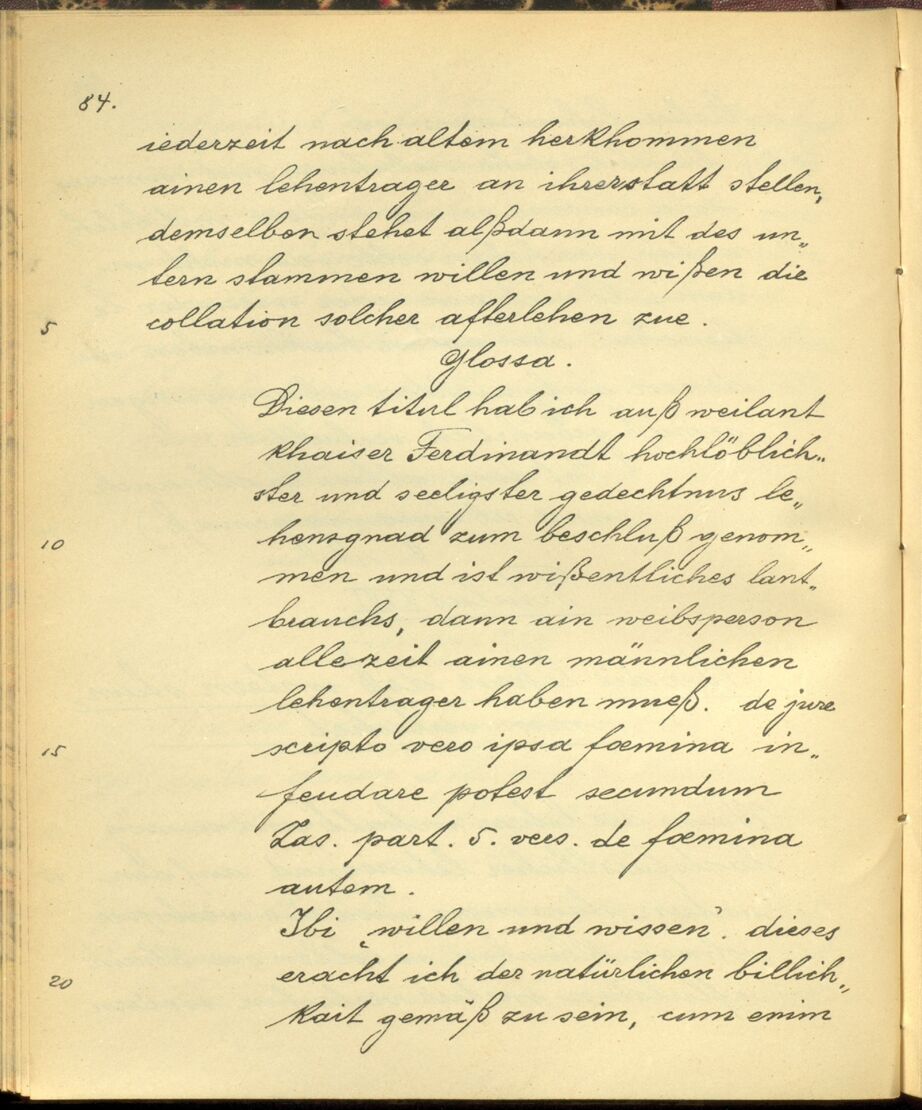 84.
iederzeit nach altem herkhommen
ainen lehentrager an ihrerstatt stellen,
demselben stehet alßdann mit des un„
tern stammen willen und wißen die
5 collation solcher afterlehen zue.
Glossa.
Diesen titul hab ich auß weilant
khaiser Ferdinandt hochlöblich„
ster und seeligster gedechtnus le„
10 hensgnad zum beschluß genom„
men und ist wißentliches lant„
brauchs, dann ain weibsperson
allezeit ainen männlichen
lehentrager haben mueß. de jure
15 scripto vero ipsa fœmina in„
feudare potest secundum
Zas. part. 5. vers. de fœmina
autem.
Ibi „willen und wissen“. dieses
20 eracht ich der natürlichen billich„
kait gemäß zu sein, cum enim